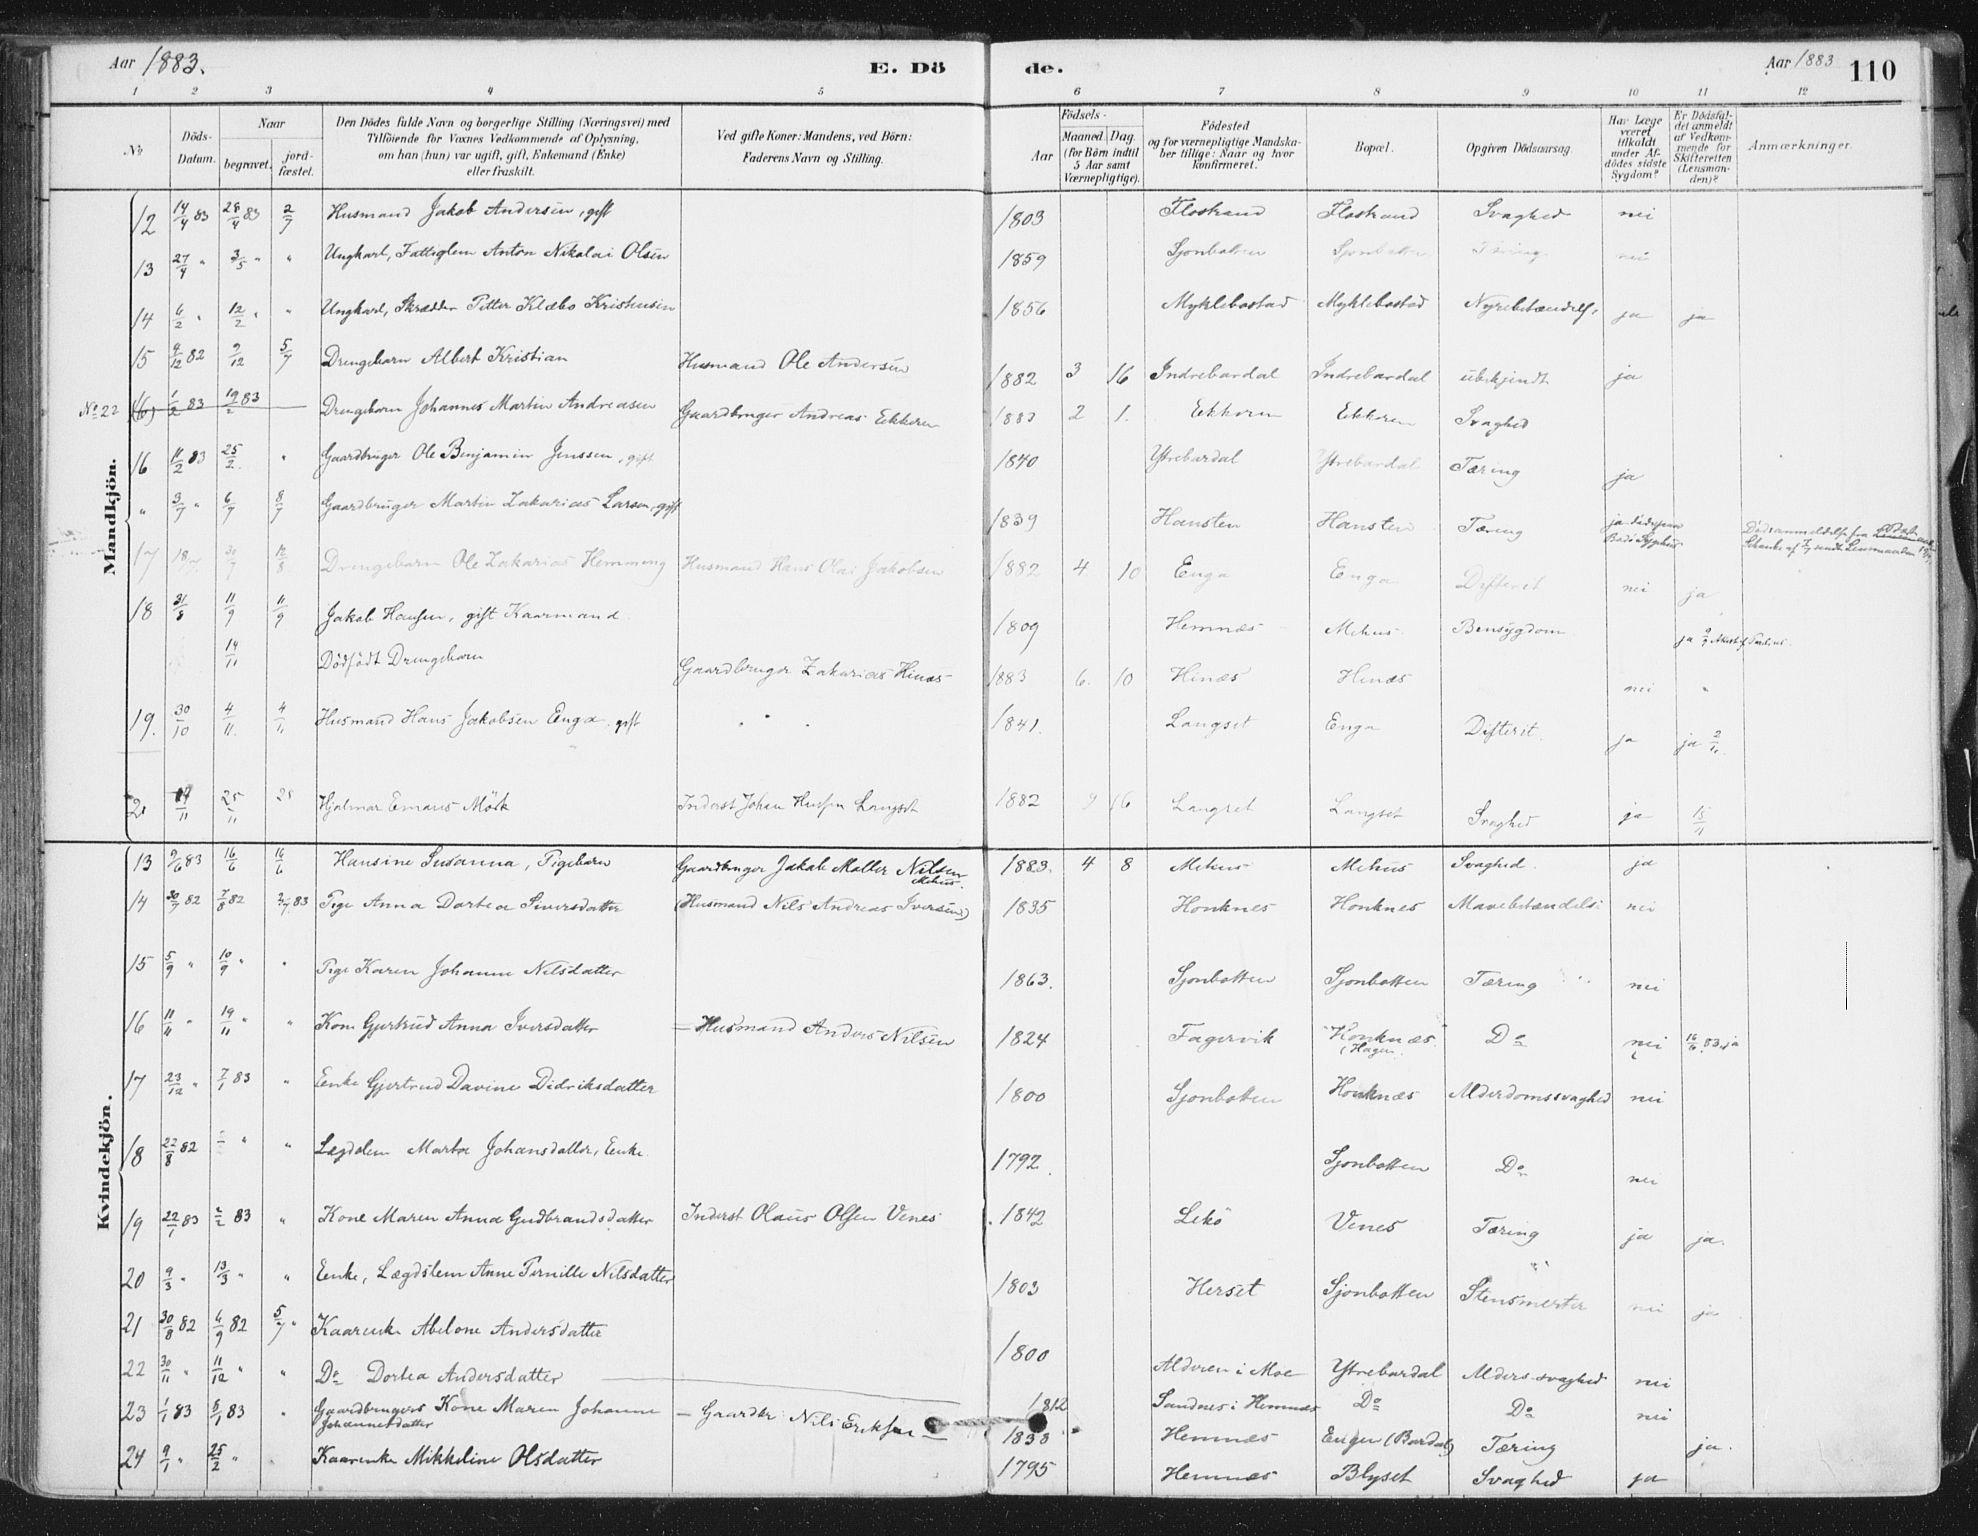 Aar 1883. E. Dö de. Aar 1883 110
1 2 3 4 5 6 7 8 9 10 11 12
No Döds-Datum. Naar begravet. jordfæstet. Den Dödes fulde Navn og borgerlige Stilling (Næringsvei) med Tilföiende for Voxnes Vedkommende af Oplysning, om han (hun) var ugift, gift, Enkemand (Enke) eller fraskilt. Ved gifte Koner: Mandens, ved Börn: Faderens Navn og Stilling. Födsels- Aar Maaned. Dag. (for Börn indtil 5 Aar samt Værnepligtige). Födested og for værnepligtige Mandskaber tillige: Naar og hvor konfirmeret. Bopæl. Opgiven Dödsaarsag. Har Læge været tilkaldt under Afdödes sidste Sygdom? Er Dödsfaldet anmeldt af Vedkommende for Skifteretten (Lensmanden)? Anmærkninger.
Mandkjön.
12 14/4 83 28/4 83 2/7 Husmand Jakob Andersen, gift 1803 Flostrand Flostrand Svaghed nei
13 27/4 " 3/5 " " Ungkarl, Fattiglem Anton Nikolai Olsen 1859 Sjonbotten Sjonbotten Tæring nei
14 6/2 " 12/2 " " Ungkarl, Skrædder Petter Klæbo Kristensen 1856 Myklebostad Myklebostad Nyrebetændelse ja ja
15 4/12 82 9/12 5/7 Drengebarn Albert Kristian Husmand Ole Andersen 1882 3 16 Indrebardal Indrebardal ubekjendt ja
No 22 (16) 1/2 83 19/2 83 Drengebarn Johannes Martin Andreasen Gaardbruger Andreas Eekkoren 1883 2 1. Eekkoren Eekkoren Svaghed
16 11/2 83 25/2. " Gaardbruger Ole Benjamin Jenssen, gift 1840 Ytrebardal Ytrebardal Tæring ja
" 3/7 " 6/7 8/7 Gaardbruger Martin Zakarias Larsen, gift 1839 Hansten Hansten Tæring
17 18/7 30/7 12/8 Drengebarn Ole Zakarias Hemming Husmand Hans Olai Jakobsen 1882 4 10 Enga Enga Difterit nei ja
18 31/8 11/9 11/9 Jakob Hansen, gift Kaarmand 1809 Hemnæs Mehus Bensygdom ja
14/11 Dödfödt Drengebarn Gaardbruger Zakarias Hinæs 1883 6. 10 Hinæs Hinæs nei "
19. 30/10 4/11. 4/11 Husmand Hans Jakobsen Enga, gift " " " 1841. Langset Enga Difterit. ja ja 2/11.
20 14/11 25/11 25 Hjalmar Emaus Mörk Inderst Johan Hansen Langset 1882 9 16 Langset Langset Svaghed ja 15/11
Kvindekjön.
13 9/6 83 16/6 16/6 Hansine Susanna, Pigebarn Gaardbruger Jakob Møller Nilsen Mehus. 1883. 4 8 Mehus Mehus Svaghed. ja
14 30/7 82 7/8 82 2/7 83 Pige Anna Dortea Siversdatter (Husmand Nils Andreas Iversen) 1835 Honknes Honknes Mavebetændelse nei
15 5/9 " 10/9 " " Pige Karen Johanne Nilsdatter 1863. Sjonbotten Sjonbotten Tæring nei
16 11/11 " 19/11 " " Kone Gjertrud Anna Iversdatter — Husmand Anders Nilsen 1824 Fagervik Honknæs (Hagen. Do nei 16/6 83. ja
17 23/12 " 7/1 83 " Enke Gjertrud Davine Didriksdatter 1800 Sjonbotten Honknæs Alderdomssvaghed nei
18 22/8 82 " " Lægdslem Marta Johansdatter, Enke. 1792. Sjonbotten Do nei
19 22/1 83 2/2 83 " Kone Maren Anna Gudbrandsdatter Inderst Olaus Olsen Venes 1842 Lekö Venes Tæring ja ja.
20 9/3 " 13/3 " " Enke, Lægdslem Anne Pernille Nilsdatter 1803 Herset Sjonbotten Stensmerter nei ja
21 30/8 82 4/9 82 5/7 " Kaarenke Abelone Andersdatter 1800
22 30/11 " 11/12 " " Do Dortea Andersdatter Alderen i Moe Ytrebardal Alders-svaghed nei
23 1/1 83 5/1 83 " Gaardbrugers Kone Maren Johanne Johannesdatter — Gaardbr. Nils Eriksen — 1812 Sandnes i Hemnæs Do Do nei
24 9/1 " 25/2 " Kaarenke Mikkeline Olsdatter 1833 Hemnæs Enger (Bardal) Tæring ja.
1795 Hemnæs Blyset Svaghed ja